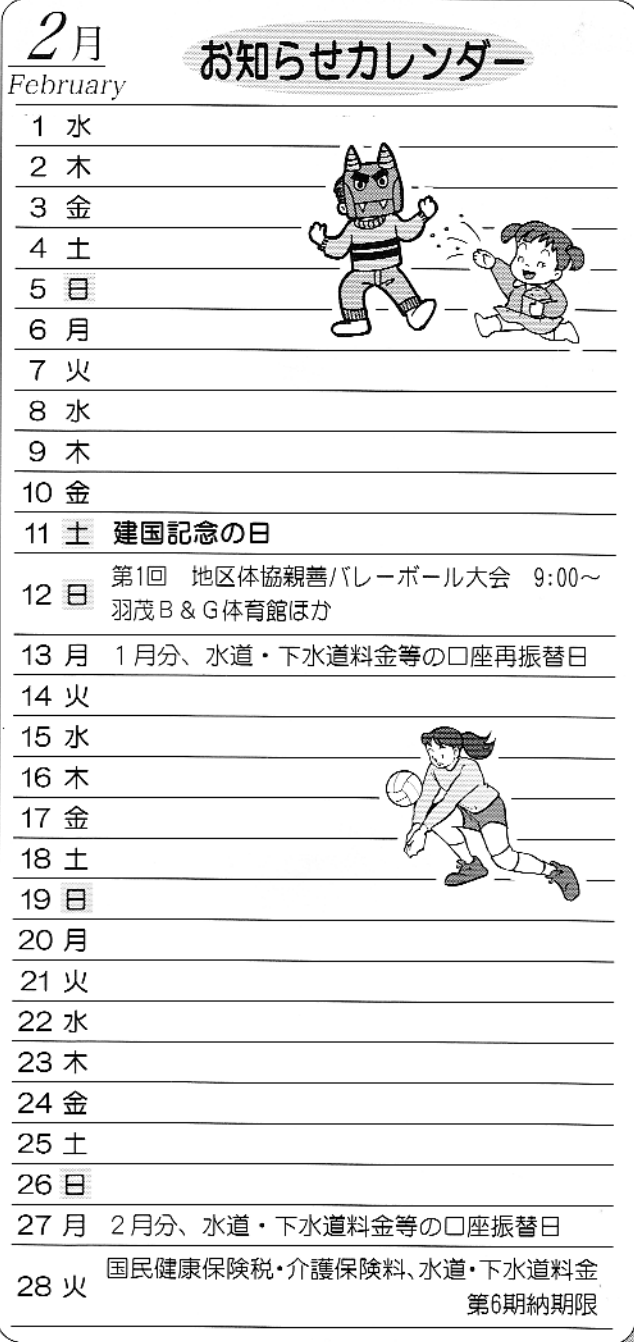 2月
February
お知らせカレンダー
1 水
2 木
3 金
4 土
5 日
6 月
7 火
8 水
9 木
10 金
11 土 建国記念の日
12 日 第1回 地区体協親善バレーボール大会 9:00～
羽茂B&G体育館ほか
13 月 1月分、水道・下水道料金等の口座再振替日
14 火
15 水
16 木
17 金
18 土
19 日
20 月
21 火
22 水
23 木
24 金
25 土
26 日
27 月 2月分、水道・下水道料金等の口座振替日
28 火 国民健康保険税・介護保険料、水道・下水道料金
第6期納期限